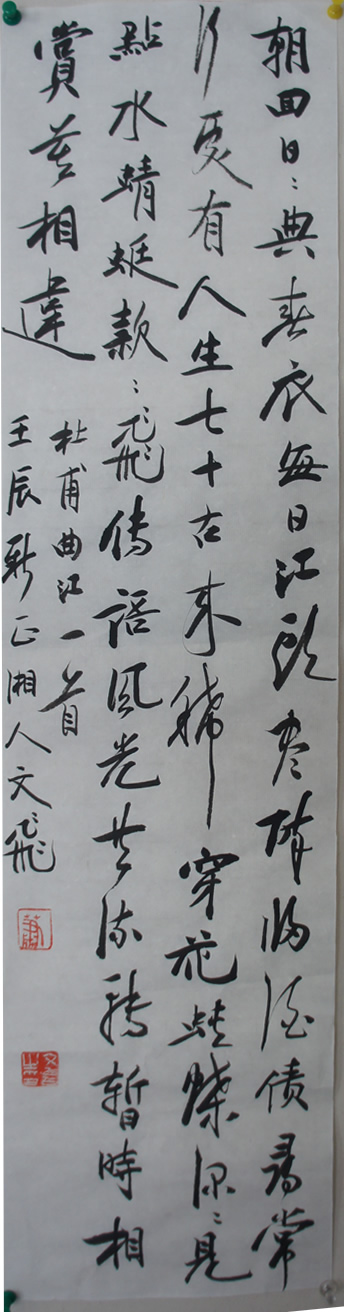 朝回日〻典春衣每日江頭尽醉归酒债尋常
行處有人生七十古来稀穿花蛱蝶深〻見
點水蜻蜓款〻飛传語風光共流轉暫時相
賞莫相違
杜甫曲江一首
壬辰新正湘人文飛